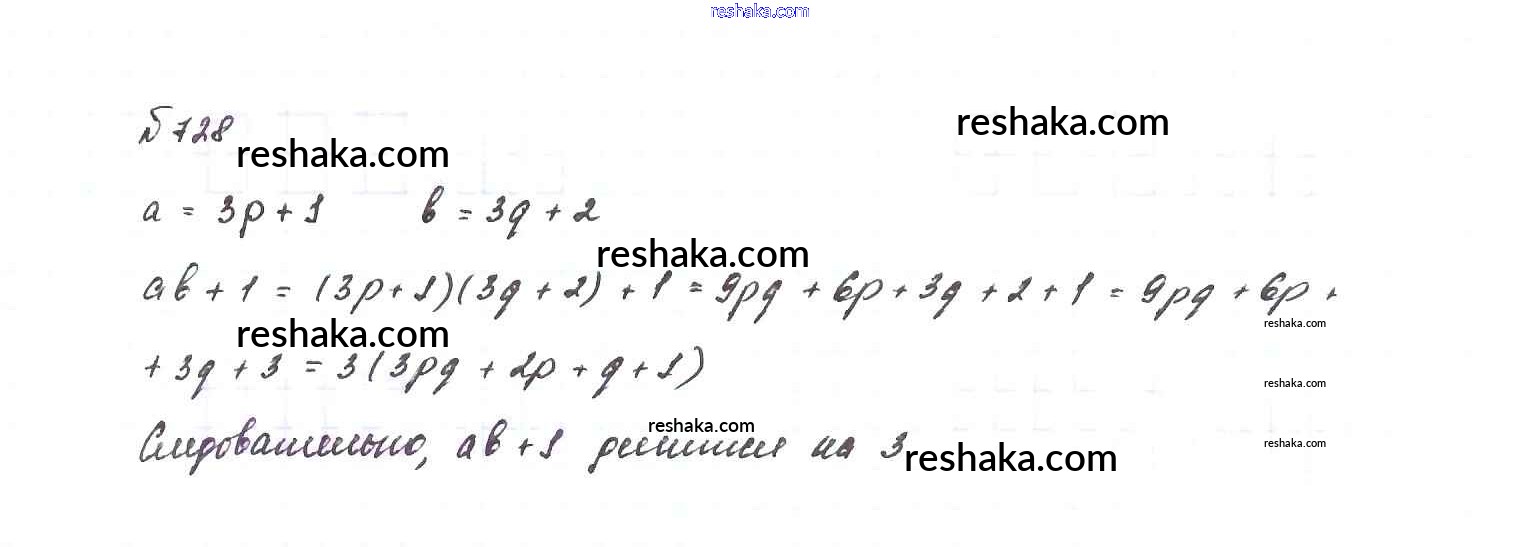 reshaka.com
№728
reshaka.com
reshaka.com
a = 3p + 1 b = 3q + 2
reshaka.com
ab + 1 = (3p + 1)(3q + 2) + 1 = 9pq + 6p + 3q + 2 + 1 = 9pq + 6p +
reshaka.com
reshaka.com
+ 3q + 3 = 3(3pq + 2p + q + 1)
reshaka.com
reshaka.com
Следовательно, ab + 1 делится на 3
reshaka.com
reshaka.com